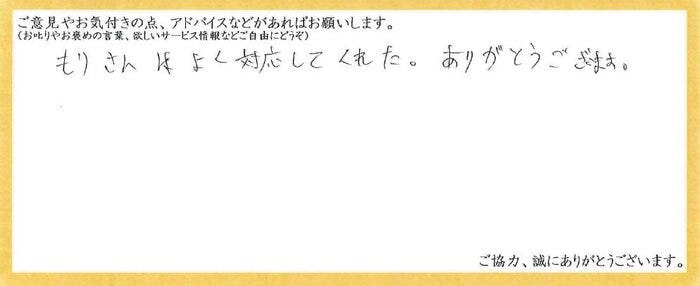 ご意見やお気付きの点、アドバイスなどがあればお願いします。
(お叱りやお褒めの言葉、欲しいサービス情報などご自由にどうぞ)
もりさんはよく対応してくれた。ありがとうございます。
ご協力、誠にありがとうございます。